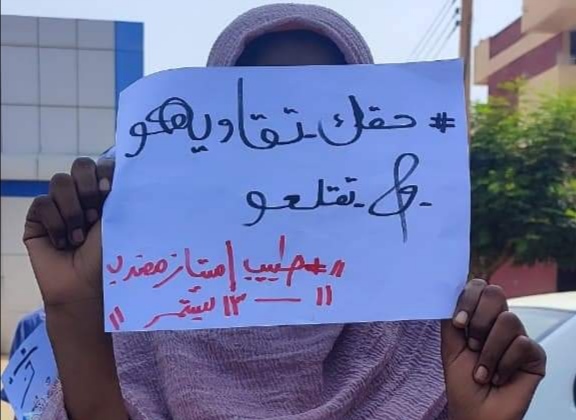 # حقك_تقاويهو
و_تقلعو_
"#طبيب_امتياز_مضرب
١١ — ١٣ سبتمبر "